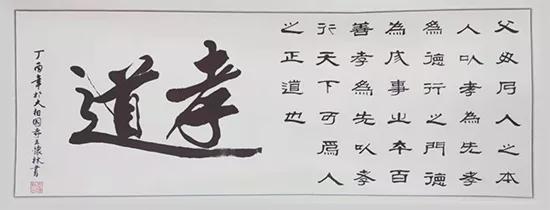 父母乃人之本
人以孝為先孝
為德行之門德
為成事之本百
善孝為先以孝
行天下可為人
之正道也
孝道
丁酉年於大相国寺王懷林書